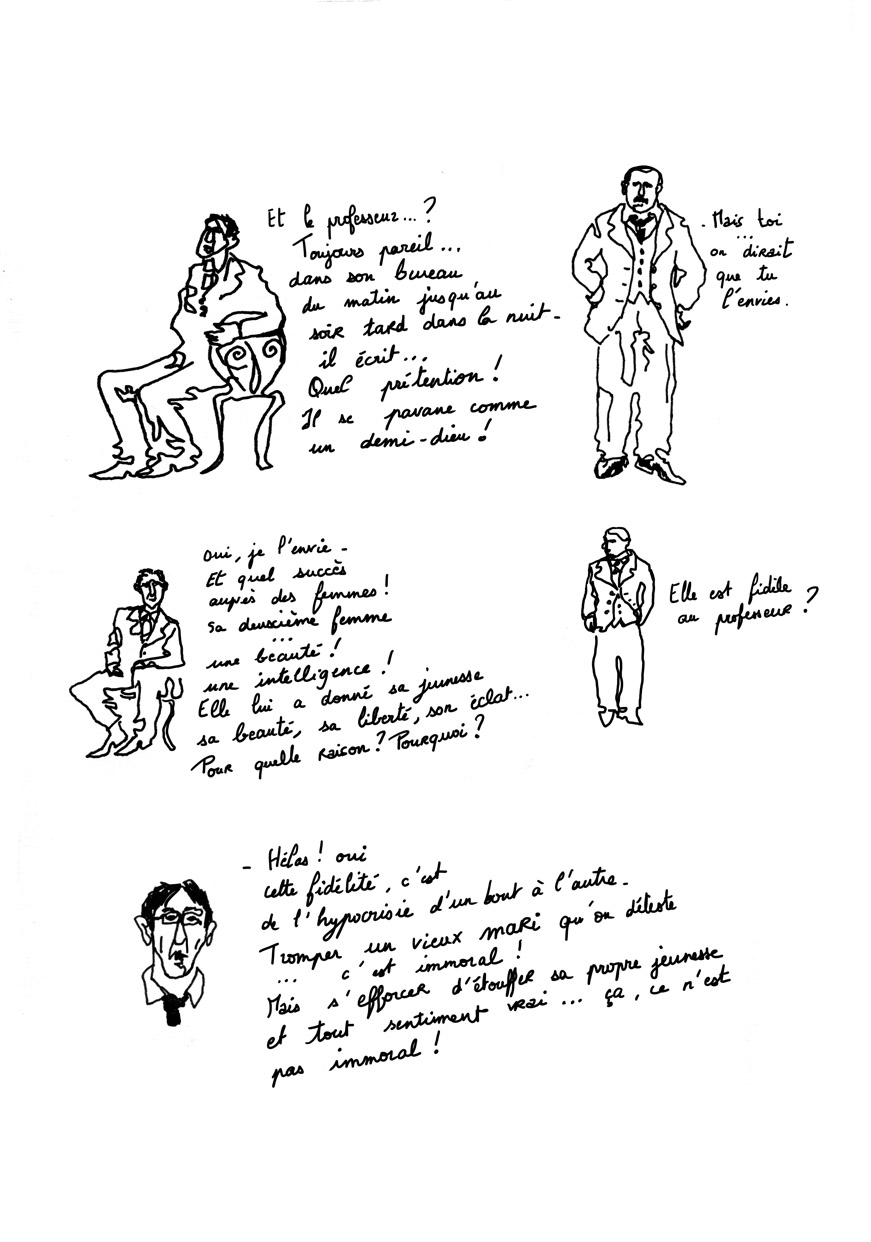 Et le professeur...?
Toujours pareil...
dans son bureau
du matin jusqu'au
soir tard dans la nuit -
il écrit...
Quel prétention !
Il se pavane comme
un demi-dieu !
- Mais toi
...
on dirait
que tu
l'envies.
Oui, je l'envie -
Et quel succès
auprès des femmes !
Sa deuxième femme
...
une beauté !
une intelligence !
Elle lui a donné sa jeunesse
sa beauté, sa liberté, son éclat...
Pour quelle raison ? Pourquoi ?
Elle est fidile
au professeur ?
- Hélas ! oui
cette fidélité, c'est
de l'hypocrisie d'un bout à l'autre -
Tromper un vieux mari qu'on déteste
... c'est immoral !
Mais s'efforcer d'étouffer sa propre jeunesse
et tout sentiment vrai... ça, ce n'est
pas immoral !